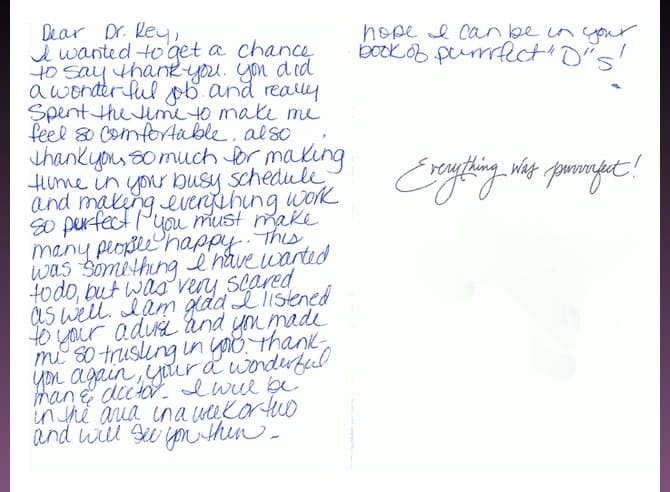 Dear Dr. Rey,
I wanted to get a chance
to say thankyou. you did
a wonderful job and really
spent the time to make me
feel so comfortable. also
thankyou so much for making
time in your busy schedule
and making everything work
so perfect! you must make
many people happy. This
was something I have wanted
to do, but was very scared
as well. I am glad I listened
to your advise and you made
me so trusting in you. Thank-
you again, your a wonderful
man & doctor - I will be
in the area in a week or two
and will see you then -
hope I can be in your
book of purrrfect "D"s!
Everything was purrrrfect!